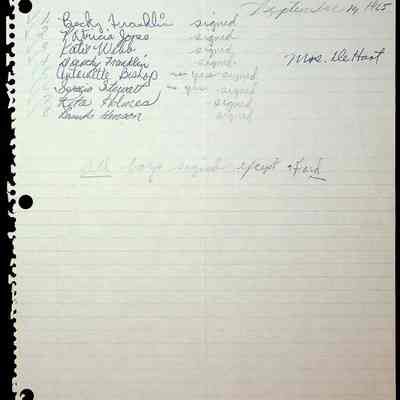 September 14, 1965
√ 1. Becky Franklin signed
√ 2. Patricia Jones signed
√ 3. Katie Webb signed
√ 4. Dorothy Franklin signed
Mrs. DeHart
Antoinette Bishop — yes signed
√ 6. Stewart — yes signed
√ 7. Rita Holmes signed
8. signed
All boys signed except Ford